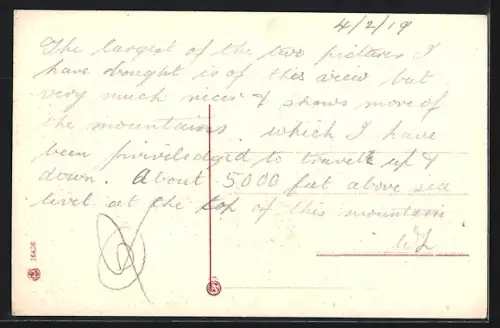 4/2/19
The largest of the two pictures I
have bought is of this view but
very much nicer & shows more of
the mountains which I have
been priviledged to travel up &
down. About 5000 feet above sea
level at the top of this mountain